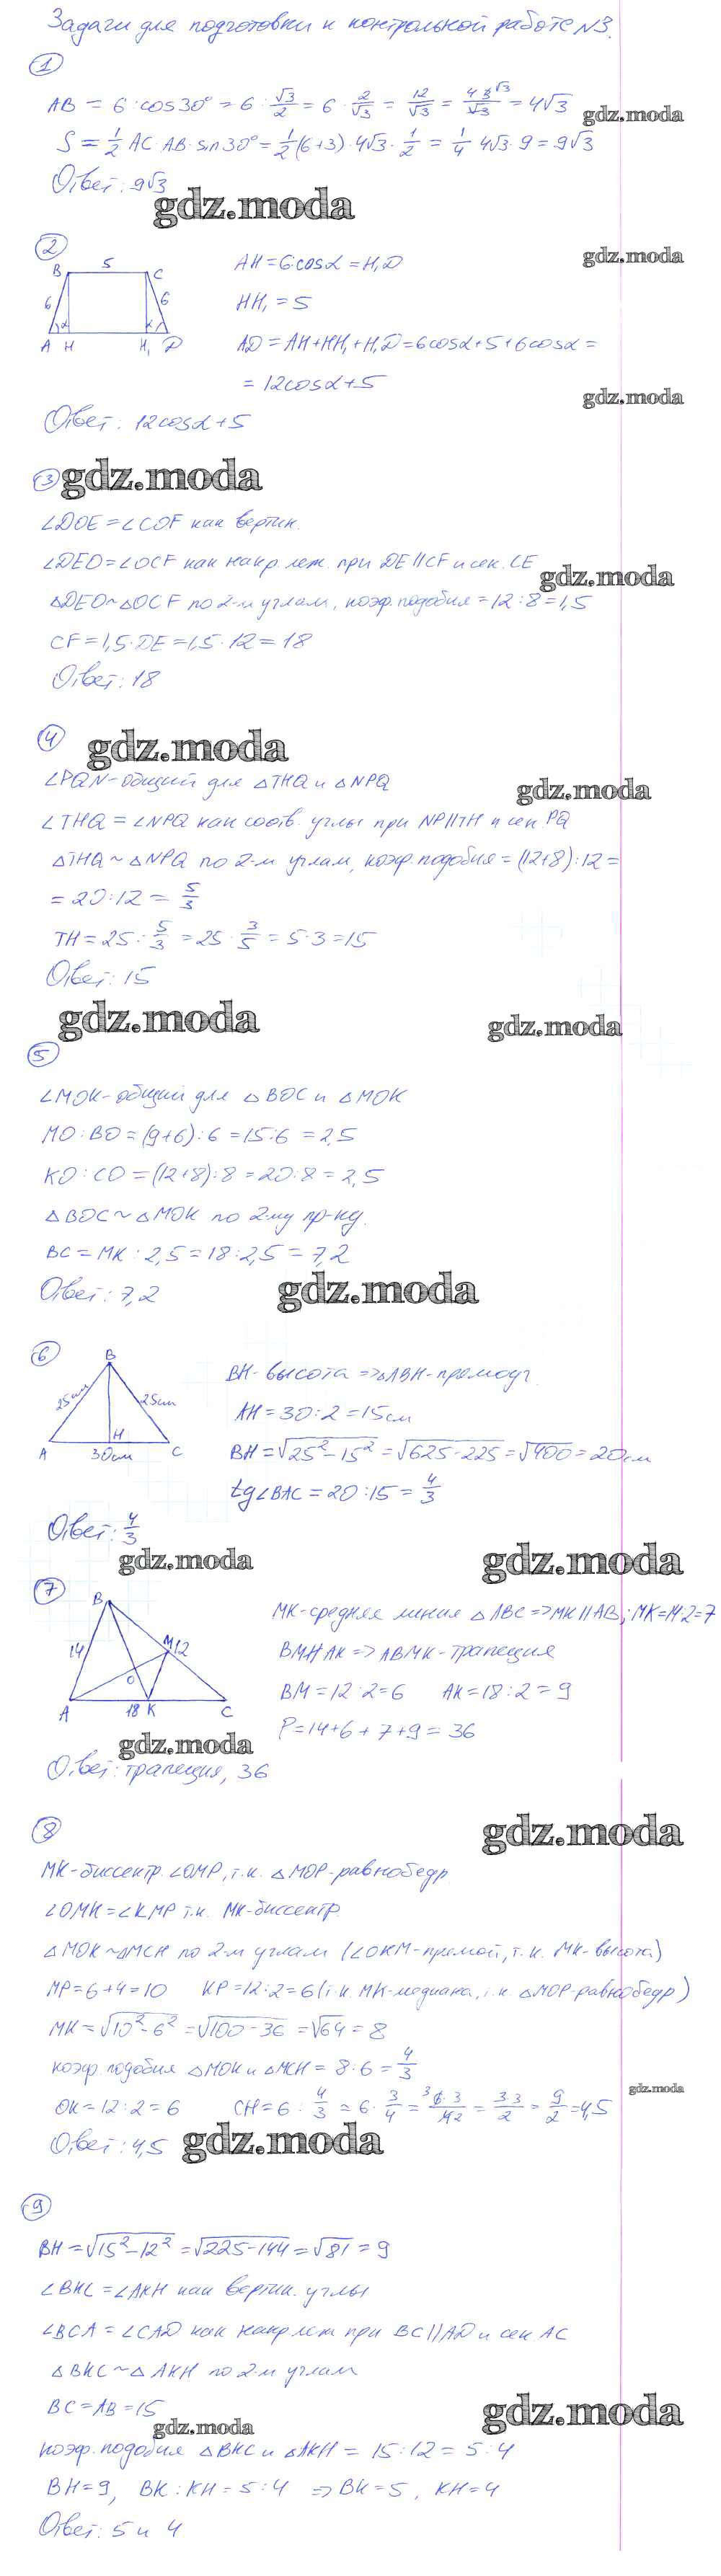 Задачи для подготовки к контрольной работе №3.
1
AB = 6 : cos30° = 6 : √3/2 = 6 · 2/√3 = 12/√3 = 4·3√3/√3 = 4√3
gdz.moda
S = 1/2 AC · AB · sin30° = 1/2 (6+3) · 4√3 · 1/2 = 1/4 4√3 · 9 = 9√3
Ответ: 9√3
gdz.moda
2
gdz.moda
B 5 C
AH = 6·cosα = H₁D
6 6
HH₁ = 5
α
A H H₁ D
AD = AH + HH₁ + H₁D = 6cosα + 5 + 6cosα =
= 12cosα + 5
gdz.moda
Ответ: 12cosα + 5
3
gdz.moda
∠DOE = ∠COF как вертик.
∠DEO = ∠OCF как накр. леж. при DE || CF и сек. CE
gdz.moda
△DEO ~ △OCF по 2-м углам, коэф. подобия = 12 : 8 = 1,5
CF = 1,5 · DE = 1,5 · 12 = 18
Ответ: 18
4
gdz.moda
∠PQN - общий для △THQ и △NPQ
gdz.moda
∠THQ = ∠NPQ как соотв. углы при NP || TH и сек. PQ
△THQ ~ △NPQ по 2-м углам, коэф. подобия = (12+8) : 12 =
= 20 : 12 = 5/3
TH = 25 : 5/3 = 25 · 3/5 = 5 · 3 = 15
Ответ: 15
gdz.moda
gdz.moda
5
∠MOK - общий для △BOC и △MOK
MO : BO = (9+6) : 6 = 15 : 6 = 2,5
KO : CO = (12+8) : 8 = 20 : 8 = 2,5
△BOC ~ △MOK по 2-му пр-ку.
BC = MK : 2,5 = 18 : 2,5 = 7,2
Ответ: 7,2
gdz.moda
6
B
25см 25см
H
A 30см C
BH - высота => △ABH - прямоуг.
AH = 30 : 2 = 15см
BH = √25² - 15² = √625 - 225 = √400 = 20см
tg∠BAC = 20 : 15 = 4/3
Ответ: 4/3
gdz.moda
gdz.moda
7
B
14 M 12
O
A 18 K C
MK - средняя линия △ABC => MK || AB; MK = 14:2 = 7
BM ∦ AK => ABMK - трапеция
BM = 12 : 2 = 6 AK = 18 : 2 = 9
P = 14 + 6 + 7 + 9 = 36
gdz.moda
Ответ: трапеция, 36
8
gdz.moda
MK - биссектр. ∠OMP, т.к. △MOP - равнобедр.
∠OMK = ∠KMP т.к. MK - биссектр.
△MOK ~ △MCH по 2-м углам (∠OKM - прямой, т.к. MK - высота)
MP = 6 + 4 = 10 KP = 12 : 2 = 6 (т.к. MK - медиана, т.к. △MOP - равнобедр)
MK = √10² - 6² = √100 - 36 = √64 = 8
коэф. подобия △MOK и △MCH = 8 : 6 = 4/3
gdz.moda
OK = 12 : 2 = 6 CH = 6 : 4/3 = 6 · 3/4 = 3 6·3/4 2 = 3·3/2 = 9/2 = 4,5
Ответ: 4,5
gdz.moda
9
BH = √15² - 12² = √225 - 144 = √81 = 9
∠BKC = ∠AKH как вертик. углы
∠BCA = ∠CAD как накр леж при BC || AD и сек AC
△BKC ~ △AKH по 2-м углам
BC = AB = 15
gdz.moda
gdz.moda
коэф. подобия △BKC и △AKH = 15 : 12 = 5 : 4
BH = 9, BK : KH = 5 : 4 => BK = 5, KH = 4
Ответ: 5 и 4